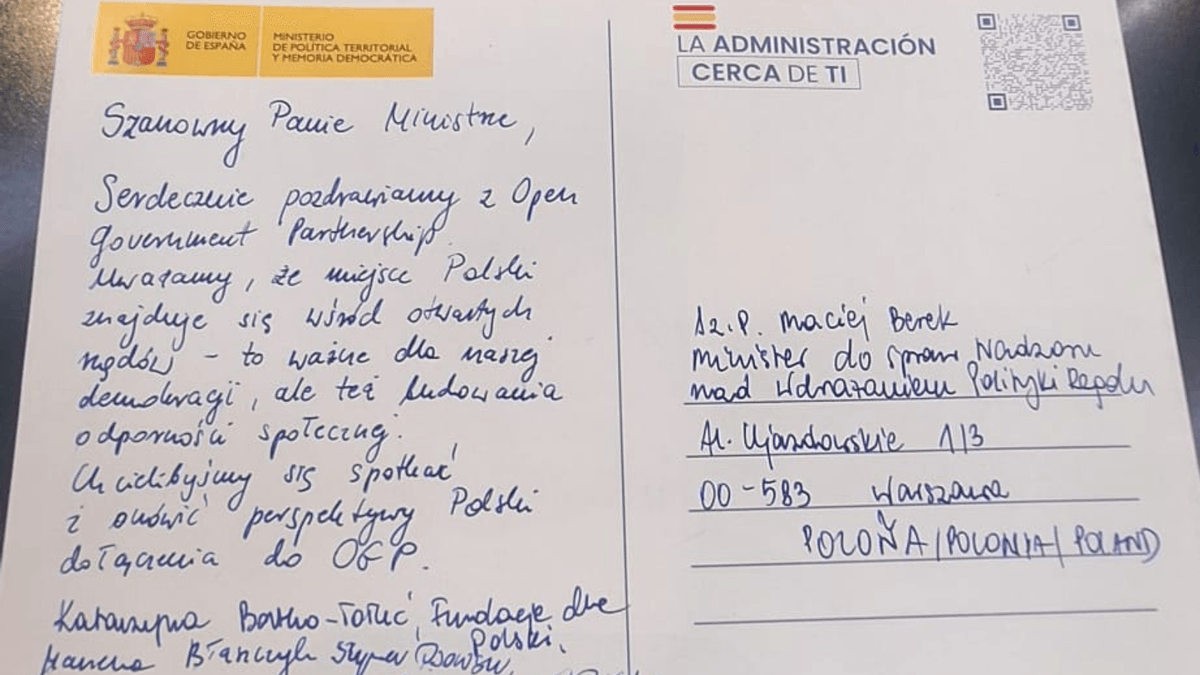 GOBIERNO
DE ESPAÑA
MINISTERIO
DE POLÍTICA TERRITORIAL
Y MEMORIA DEMOCRÁTICA
Szanowny Panie Ministrze,
Serdecznie pozdrawiamy z Open
Government Partnership.
Uważamy, że miejsce Polski
znajduje się wśród otwartych
rządów – to ważne dla naszej
demokracji, ale też budowania
odporności społecznej.
Chcielibyśmy się spotkać
i omówić perspektywy Polski
dołączenia do OGP.
Katarzyna Fundacja dla
Polski,
LA ADMINISTRACIÓN
CERCA DE TI
Sz.P. Maciej Berek
Minister do spraw Nadzoru
nad Wdrażaniem Polityki Rządu
Al. Ujazdowskie 1/3
00-583 Warszawa
POLONIA / POLAND